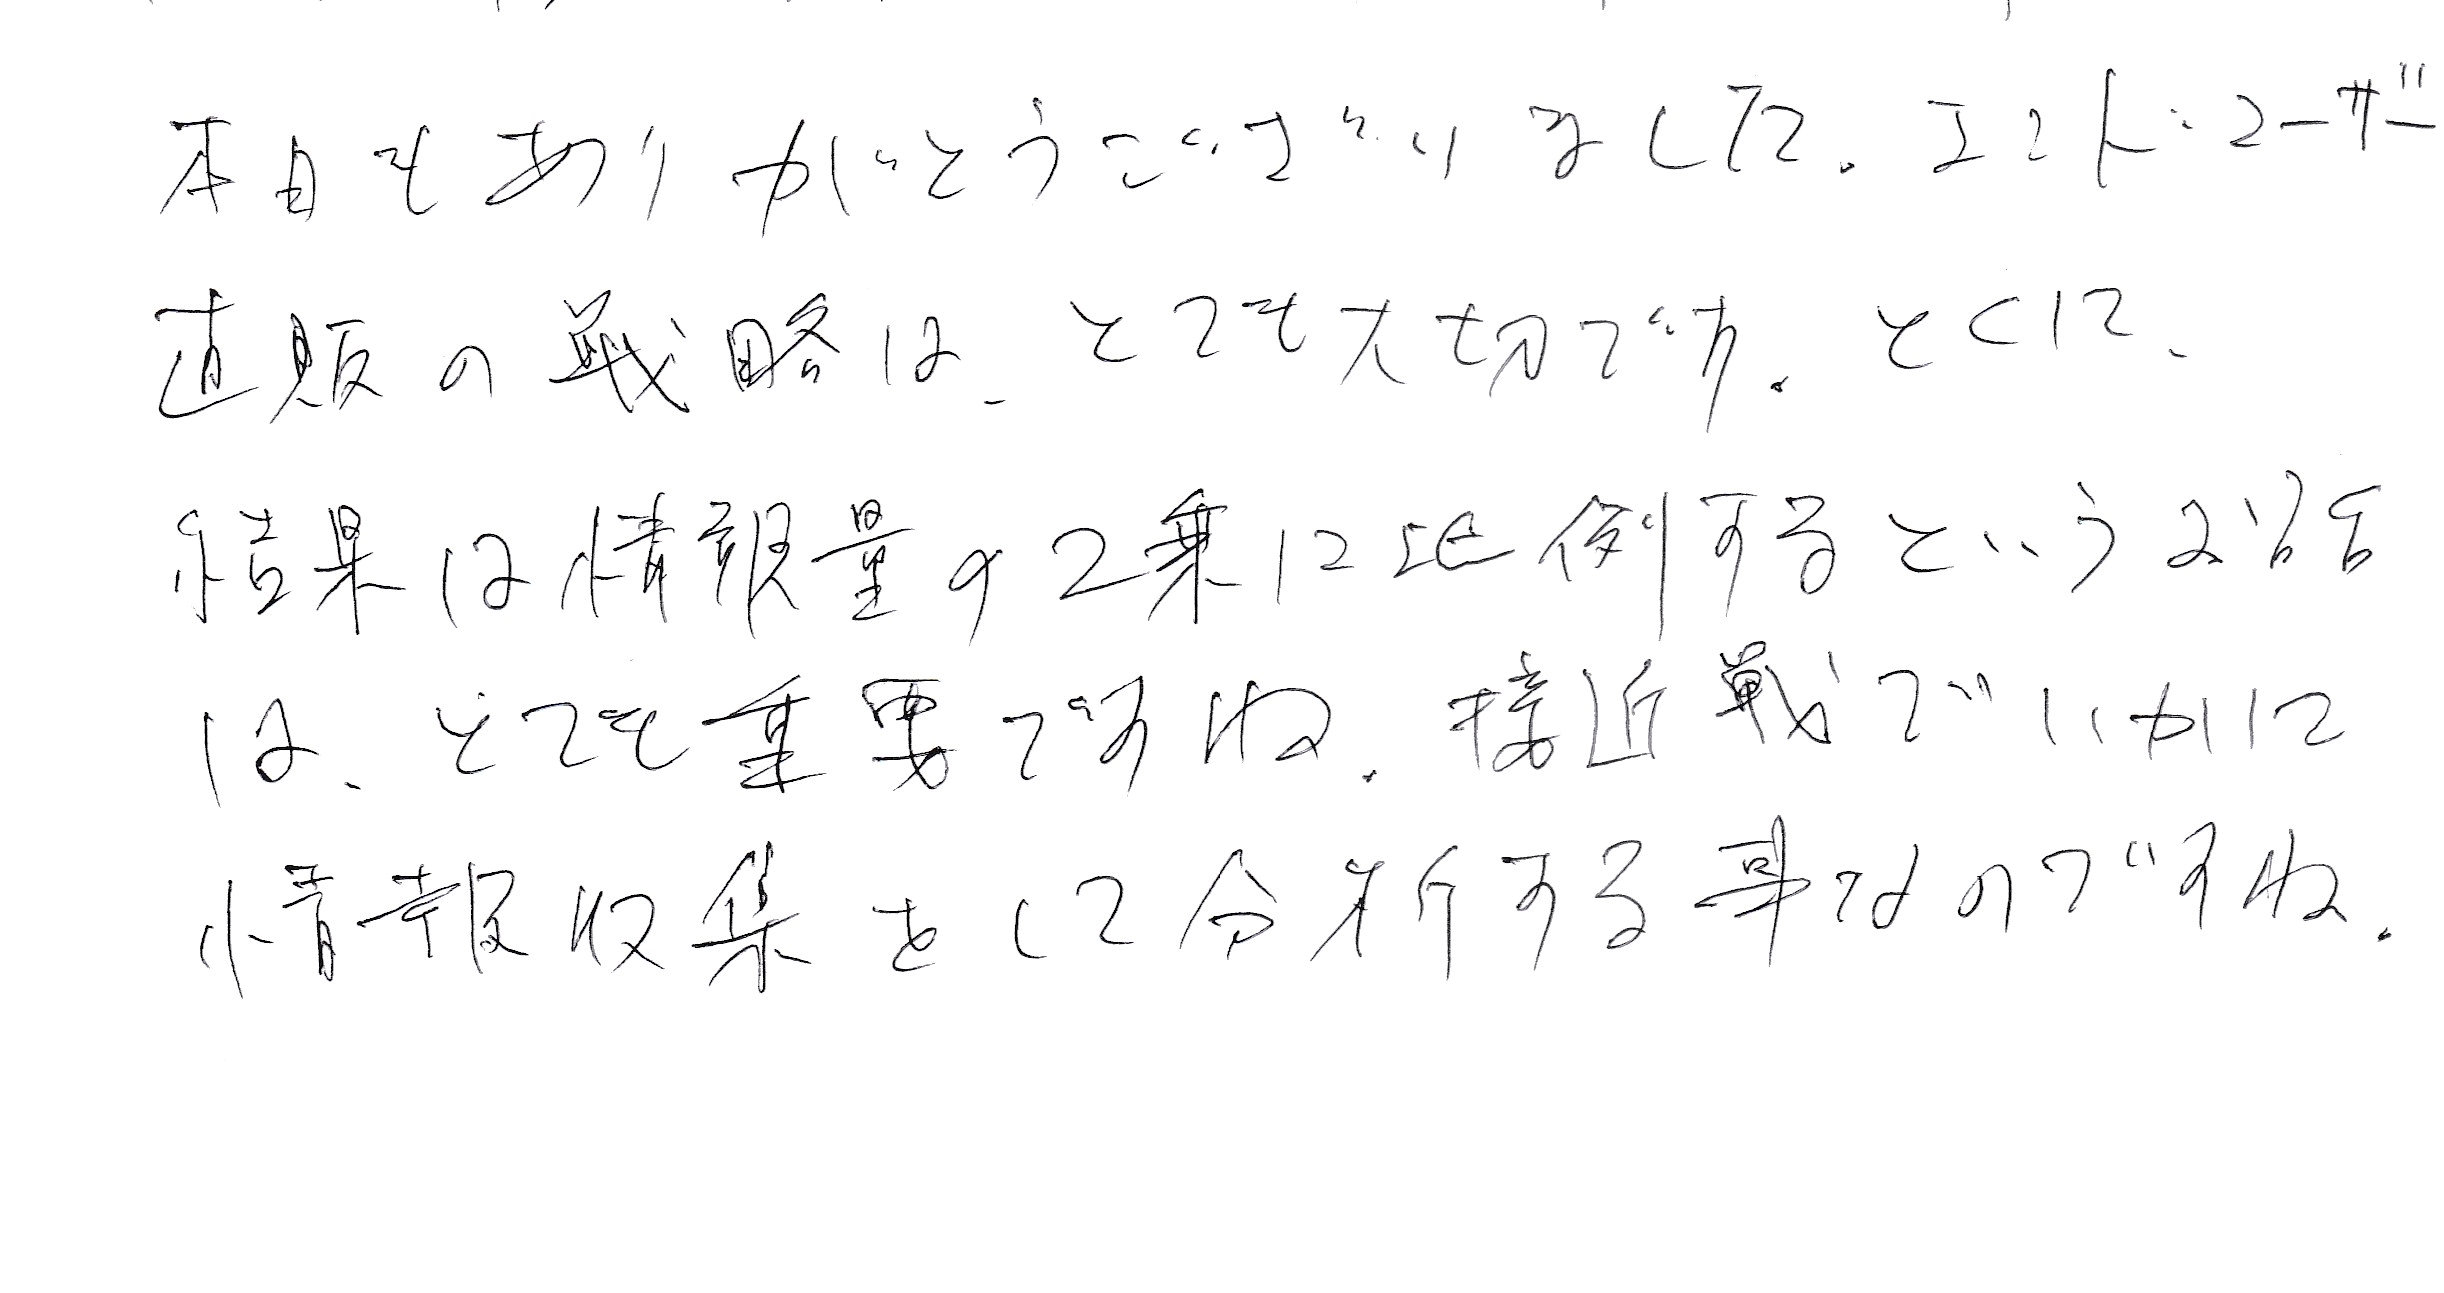 本日もありがとうございました。エンドユーザー
直販の戦略は、とても大切です。とくに、
結果は情報量の2乗に比例するというお話
は、とても重要ですね。接近戦でいかに
情報収集をして分析する事なのですね。